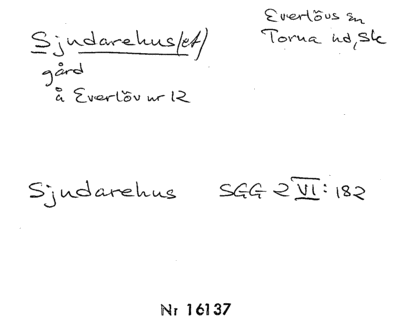 Sjndarehus(et)
Everlövs sn
Torna hd, Sk
gård
å Everlöv nr 12
Sjndarehus SGG 2 VI: 182
Nr 16137